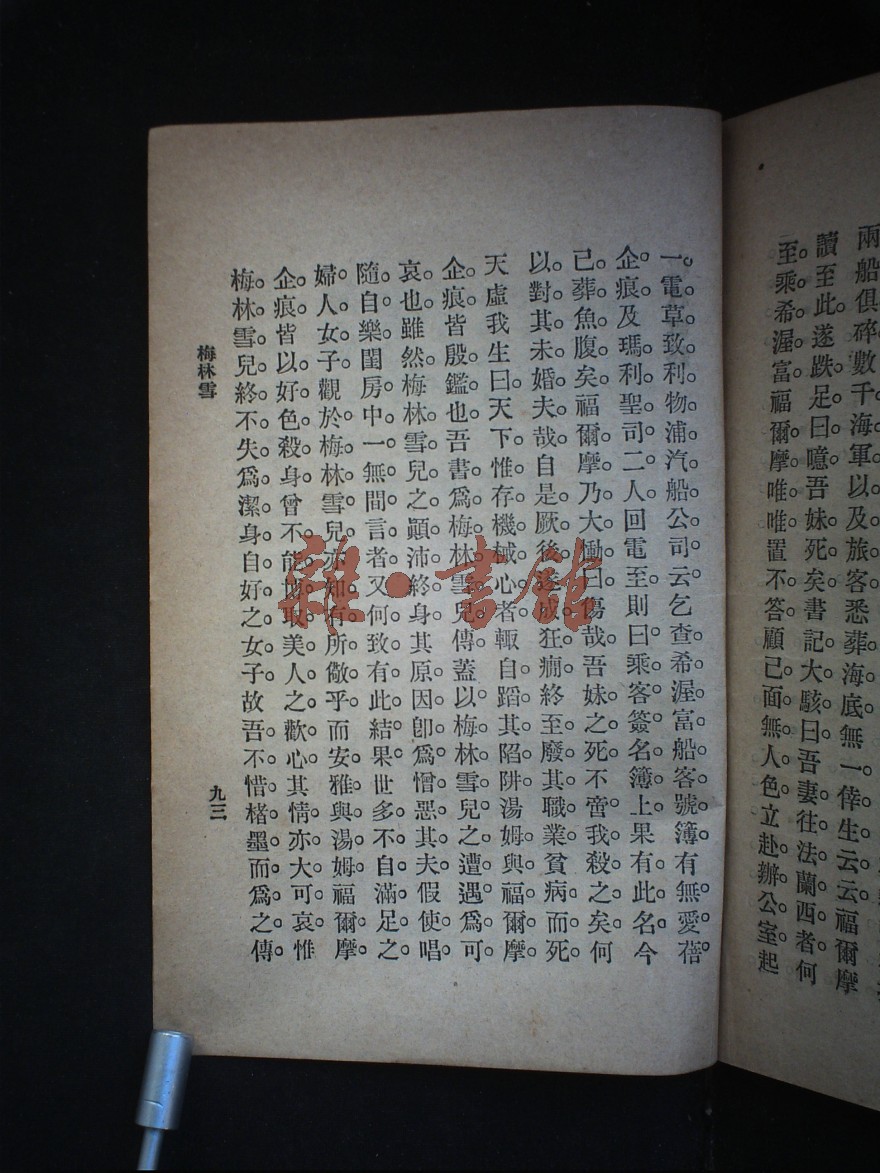 兩船俱碎數千海軍以及旅客悉葬海底無一倖生云云福爾摩
讀至此。遂跌足曰。噫吾妹死矣。書記大駭曰。吾妻往法蘭西者何
至乘希渥富。福爾摩唯唯。置不答。顧已面無人色。立赴辦公室起
一電草。致利物浦汽船公司云。乞查希渥富船客號簿。有無愛蓓
企痕。及瑪利聖司二人。回電至。則曰。乘客簽名簿上。果有此名。今
已葬魚腹矣。福爾摩乃大慟曰。傷哉吾妹之死。不啻我殺之矣。何
以對其未婚夫哉。自是厥後。遂成狂癎。終至廢其職業。貧病而死。
天虛我生曰。天下惟存機械心者。輒自蹈其陷阱。湯姆與福爾摩。
企痕。皆殷鑑也。吾書爲梅林雪兒傳。蓋以梅林雪兒之遭遇。爲可
哀也。雖然。梅林雪兒之顚沛終身。其原因卽爲憎惡其夫。假使唱
隨自樂。閨房中一無間言者。又何致有此結果。世多不自滿足之
婦人女子。觀於梅林雪兒。亦知有所儆乎。而安雅與湯姆福爾摩。
企痕。皆以好色殺身。曾不能博取美人之歡心。其情亦大可哀。惟
梅林雪兒。終不失爲潔身自好之女子。故吾不惜楮墨而爲之傳。
梅林雪
九三
雜·書館